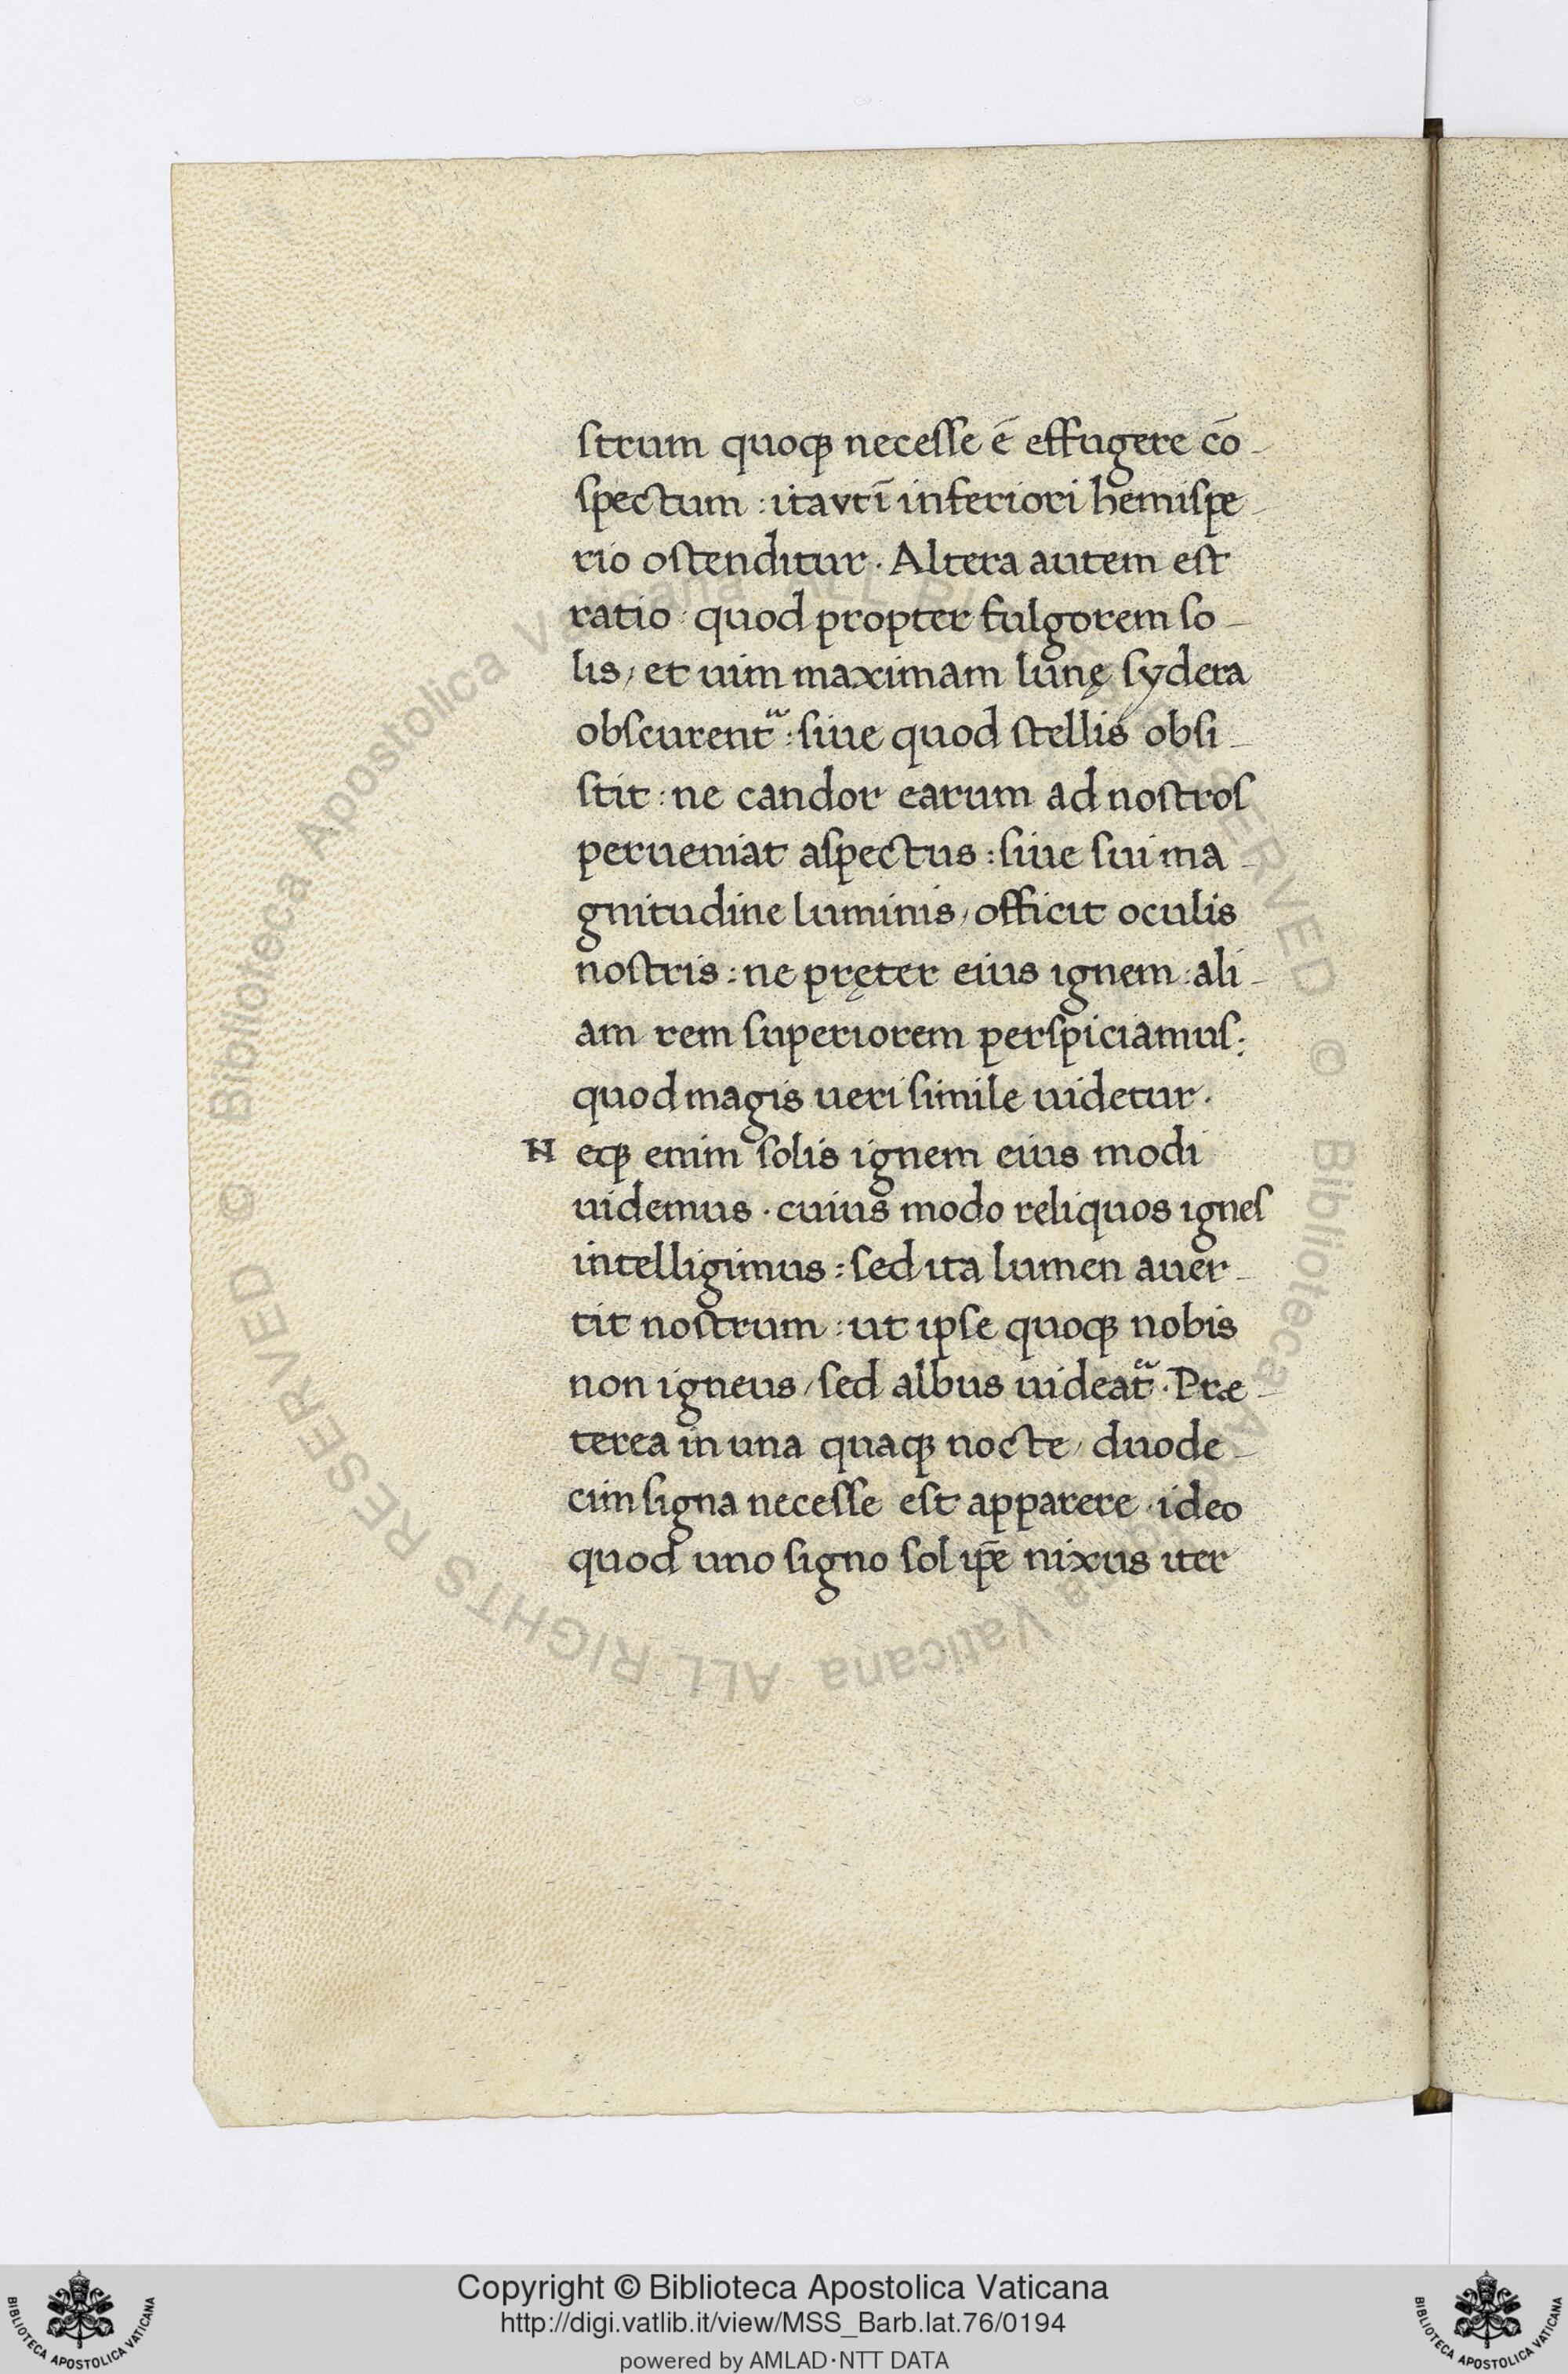 ſtrum quoqꝫ neceſſe ē effugere cō-
ſpectum : ita vt ī inferiori hemiſpe-
rio oſtenditur · Altera autem eſt
ratio · quod propter fulgorem ſo-
lis, et uim maximam lunę ſydera
obſcurent᷑ : ſiue quod ſtellis obſi-
ſtit : ne candor earum ad noſtroſ
perueniat aſpectus : ſiue ſui ma-
gnitudine luminis, officit oculis
noſtris : ne pręter eius ignem : ali-
am rem ſuperiorem perſpiciamuſ :
quod magis ueri ſimile uidetur ·
N eqꝫ enim ſolis ignem eius modi
uidemus · cuius modo reliquos igneſ
intelligimus : ſed ita lumen auer-
tit noſtrum : ut ipſe quoqꝫ nobis
non igneus, ſed albus uideat᷑ · Præ-
terea in una quaqꝫ nocte, duode-
cim ſigna neceſſe eſt apparere · ideo
quod uno ſigno ſol ip̄e nixus iter
© Biblioteca Apostolica Vaticana ALL RIGHTS RESERVED © Biblioteca Apostolica Vaticana ALL RIGHTS RESERVED
Copyright © Biblioteca Apostolica Vaticana
http://digi.vatlib.it/view/MSS_Barb.lat.76/0194
powered by AMLAD·NTT DATA
BIBLIOTECA APOSTOLICA VATICANA
BIBLIOTECA APOSTOLICA VATICANA